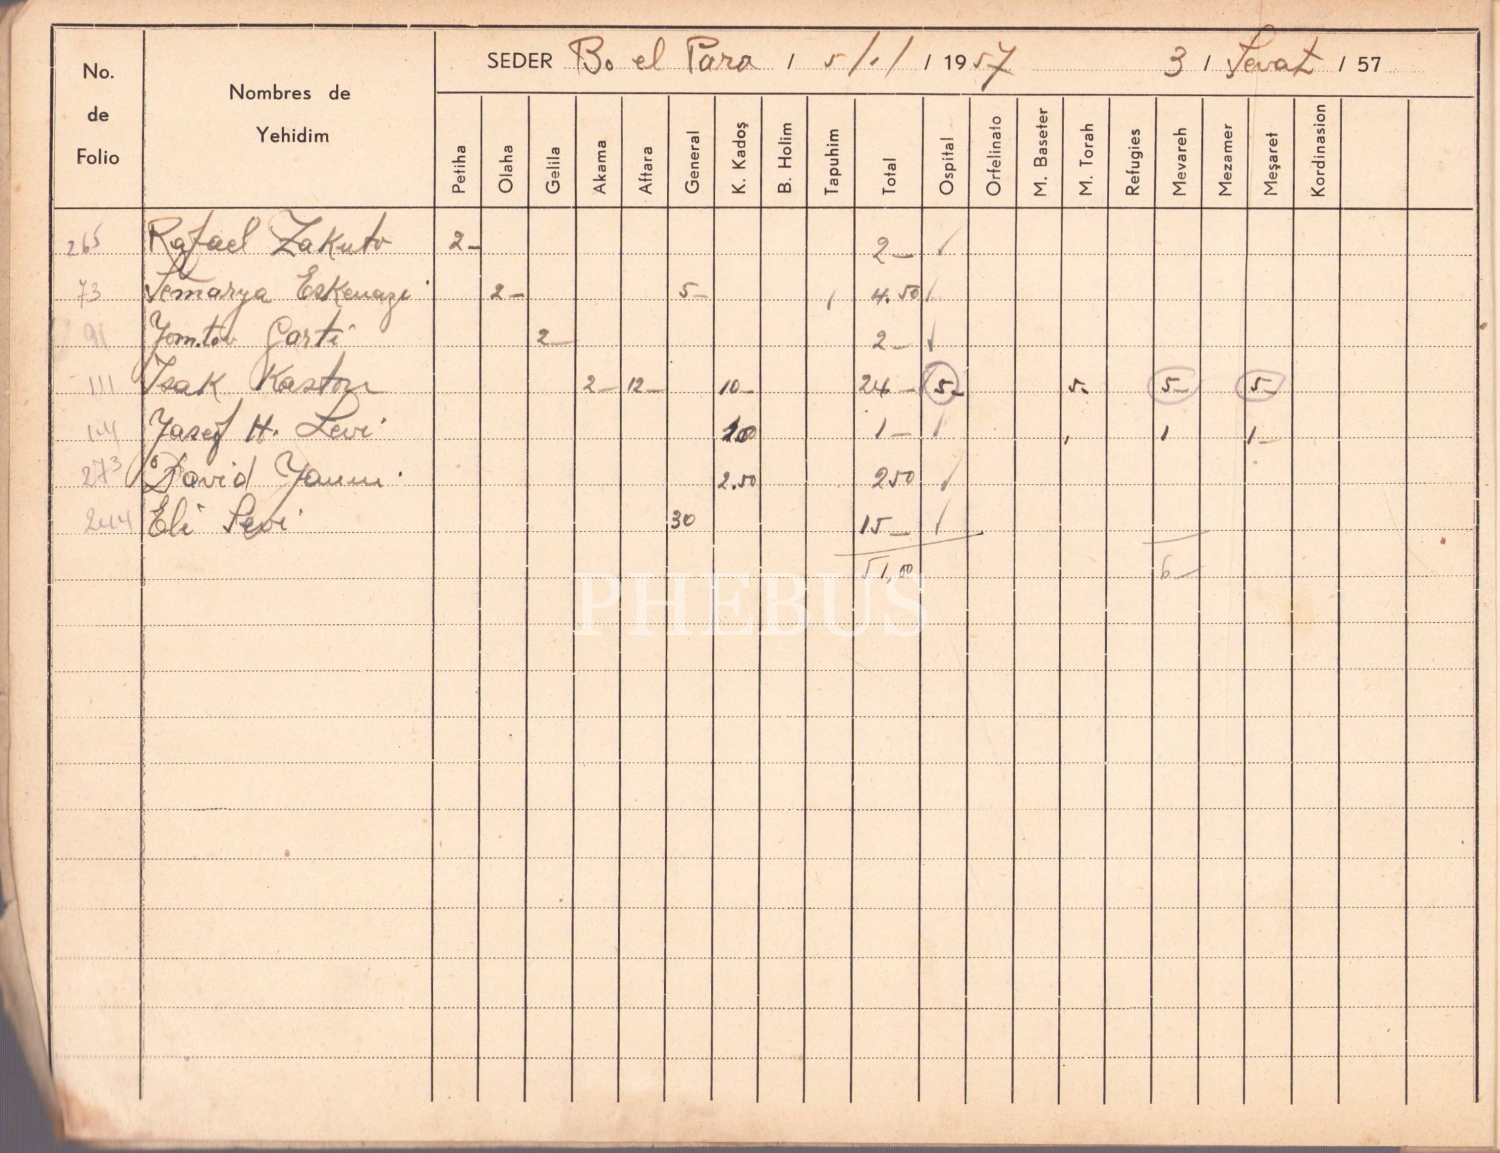 SEDER Bo el Para / 5/1/ / 1957 3 / Şevat / 57
No. de Folio
Nombres de Yehidim
Petiha Olaha Gelila Akama Aftara General K. Kadoş B. Holim Tapuhim Total Ospital Orfelinato M. Baseter M. Torah Refugies Mevareh Mezamer Meşaret Kordinasion
265 Rafael Zakuto 2- 2-
73 Şemarya Eskenazi 2- 5- 4.50
91 Yomtov Garti 2- 2-
111 Isak Kaston 2- 12- 10- 24- 5- 5- 5- 5-
Yasef H. Levi 1.00 1- 1 1-
273 David 2.50 250
244 Eli Levi 30 15-
51,00 6-
PHEBUS